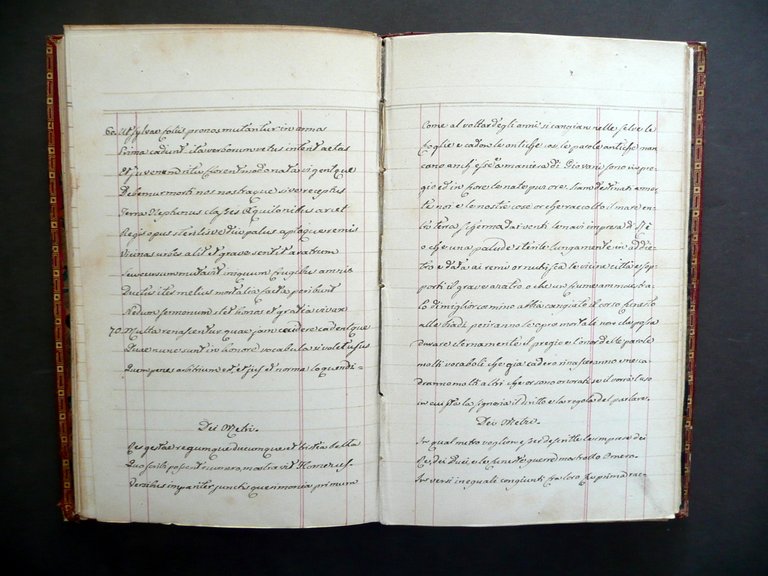 60. Ut Sylvae foliis pronos mutantur in annos
Prima cadunt ita verborum vetus interit aetas
Et juvenum ritu florent modo nata vigentque
Debemur morti nos nostraque sive receptus
Terra Nephunus classes Aquilonibus arcet
Regis opus sterilisve diu palus aptaque remis
Vicinas urbes alit et grave sentit aratrum
Seu cursum mutavit iniquum frugibus amnis
Doctus iter melius mortalia facta peribunt
Nedum sermonum stet honos et gratia vivax
70. Multa renascentur quae jam cecidere cadentque
Quae nunc sunt in honore vocabula si volet usus
Quem penes arbitrium est et jus et norma loquendi =
Dei Metri.
Res gestae regumque ducumque et tristia bella
Quo scribi possent numero, mostravit Homerus
Versibus impariter junctis querimonia primum
Come al voltar degli anni si cangian nelle selve le
foglie e cadon le antiche così le parole antiche man
cano anch'esse a maniera di Giovani sono in pre
gio ed in fiore le nate pur ora. Siam destinati a mor
te noi e le nostre cose or che raccolto il mare en
tro terra, si ferma dai venti le navi impresa di Re
o che una palude sterile lungamente in addie
tro e data ai remi or nutrisca le vicine città e sop
porti il grave aratro o che un fiume ammaestra
to di miglior camino abbia cangiato il corso funesto
alle biade, periranno le opre mortali non che possa
durare eternamente il pregio e l'onor delle parole
molti vocaboli che già cadero rinasceranno e ne ca
dranno molti altri che or sono onorati, se il vorrà l'uso
in cui sta la signoria il diritto e la regola del parlare.
Dei Metri.
In qual metro voglion esser descritte le imprese dei
Re, dei Duci, e le funeste guerre mostrollo Omero.
In versi ineguale congiunti fra loro fu prima rac=